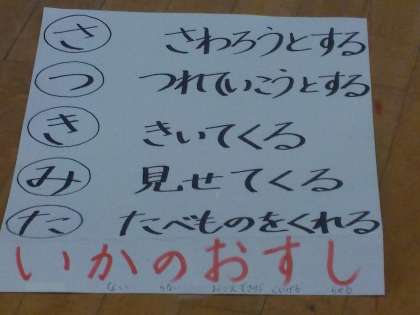 さ さわろうとする
つ つれていこうとする
き きいてくる
み 見せてくる
た たべものをくれる
いかのおすし